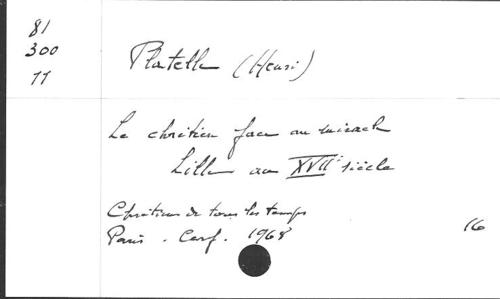 81
300
77
Platelle (Henri)
Le chrétien face au miracle
Lille au XVIIe siècle
Chrétiens de tous les temps
Paris. Cerf. 1968
16